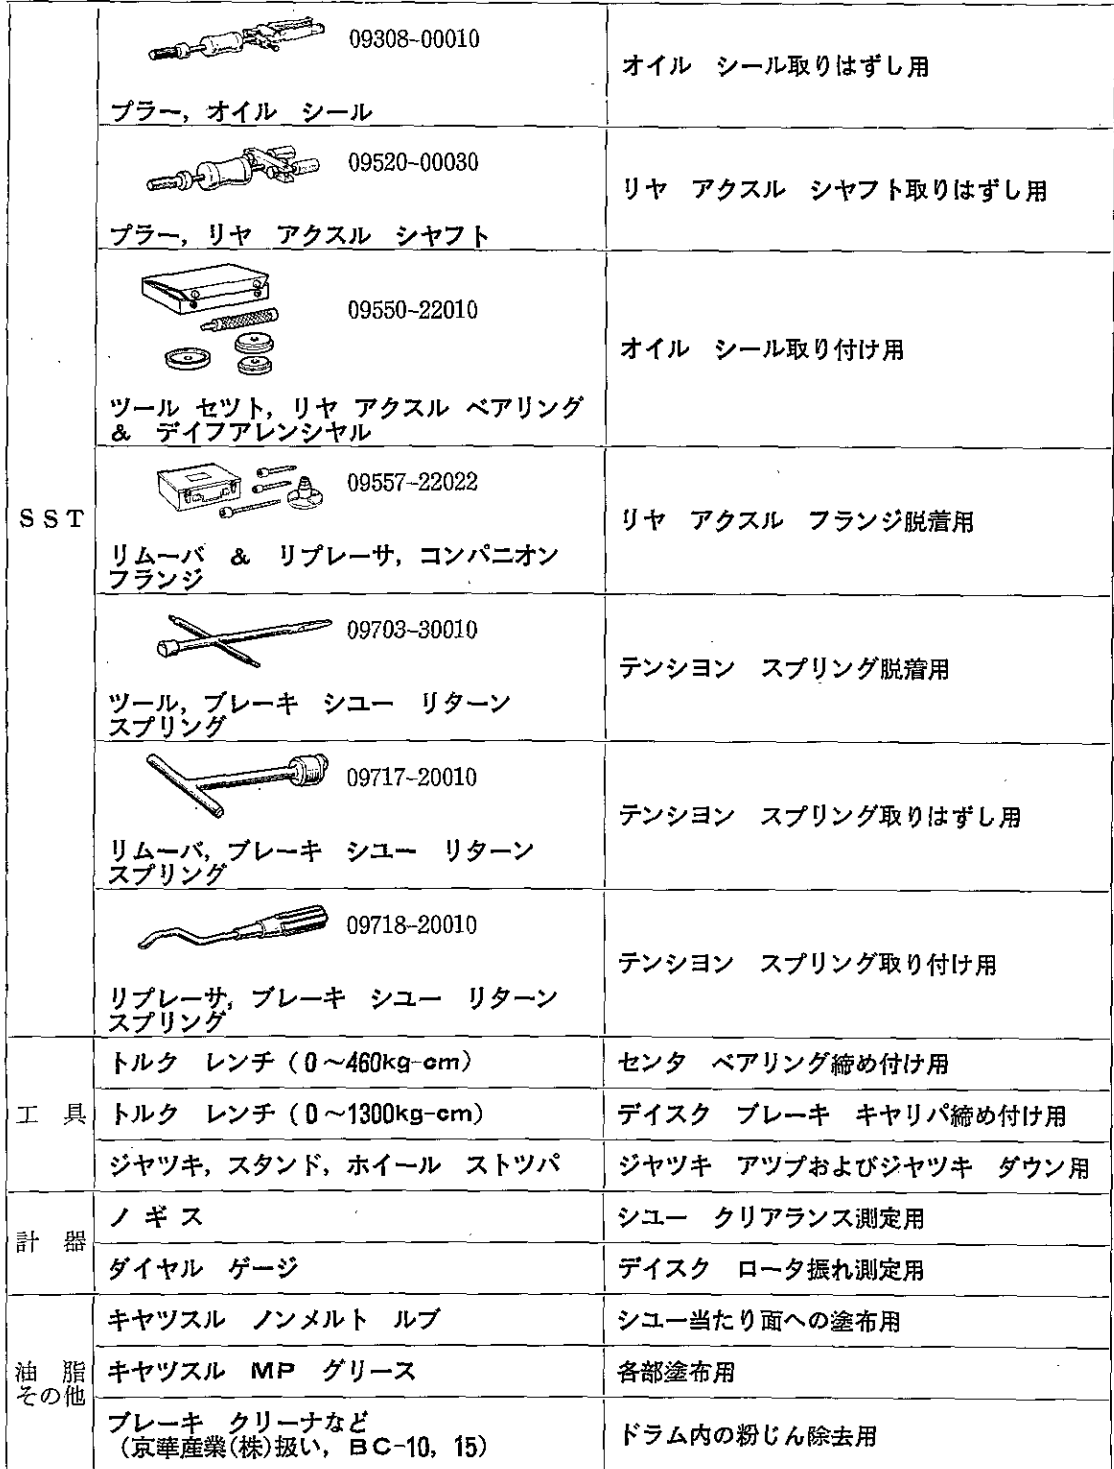 09308-00010
プラー, オイル シール
オイル シール取りはずし用
09520-00030
プラー, リヤ アクスル シヤフト
リヤ アクスル シヤフト取りはずし用
09550-22010
ツール セツト, リヤ アクスル ベアリング
& デイフアレンシヤル
オイル シール取り付け用
SST
09557-22022
リムーバ & リプレーサ, コンパニオン
フランジ
リヤ アクスル フランジ脱着用
09703-30010
ツール, ブレーキ シユー リターン
スプリング
テンシヨン スプリング脱着用
09717-20010
リムーバ, ブレーキ シユー リターン
スプリング
テンシヨン スプリング取りはずし用
09718-20010
リプレーサ, ブレーキ シユー リターン
スプリング
テンシヨン スプリング取り付け用
工 具
トルク レンチ (0~460kg-cm)
センタ ベアリング締め付け用
トルク レンチ (0~1300kg-cm)
デイスク ブレーキ キヤリパ締め付け用
ジヤツキ, スタンド, ホイール ストツパ
ジヤツキ アツプおよびジヤツキ ダウン用
計 器
ノギス
シユー クリアランス測定用
ダイヤル ゲージ
デイスク ロータ振れ測定用
油 脂
その他
キヤツスル ノンメルト ルブ
シユー当たり面への塗布用
キヤツスル MP グリース
各部塗布用
ブレーキ クリーナなど
(京華産業(株)扱い, BC-10, 15)
ドラム内の粉じん除去用